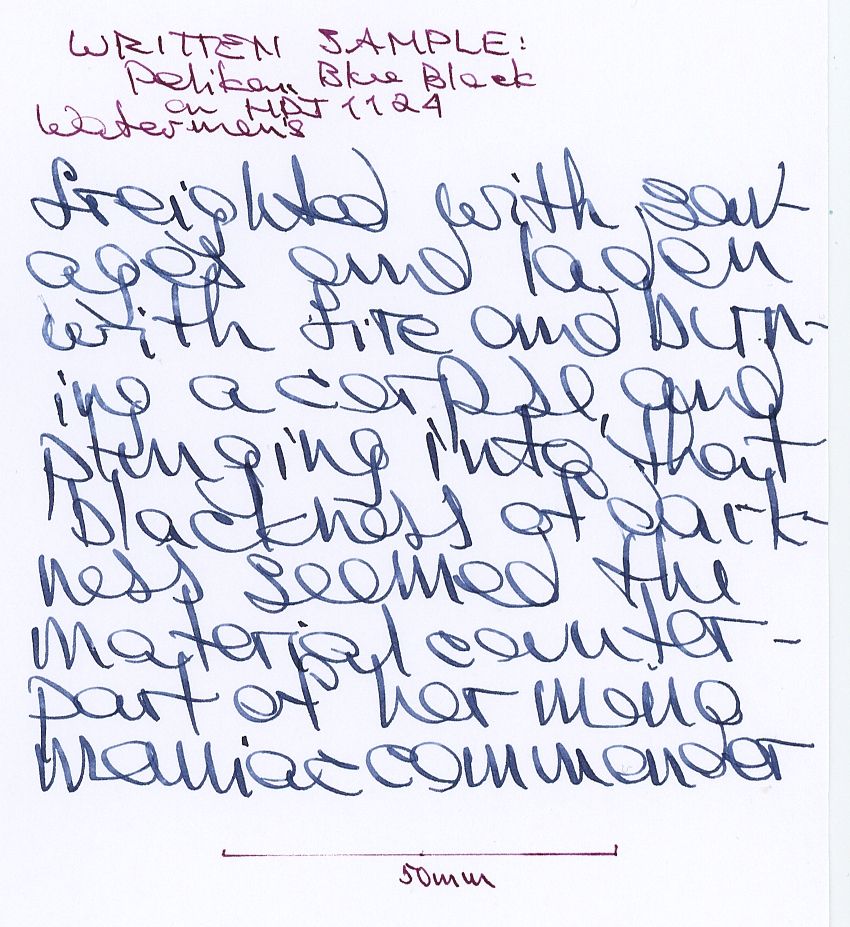 WRITTEN SAMPLE:
Pelikan Blue Black
on HPJ 1124
Waterman's
freighted with sav-
ages and laden
with fire and burn-
ing a corpse, and
plunging into that
blackness of dark-
ness seemed the
material counter-
part of her mono
maniac commander
50mm